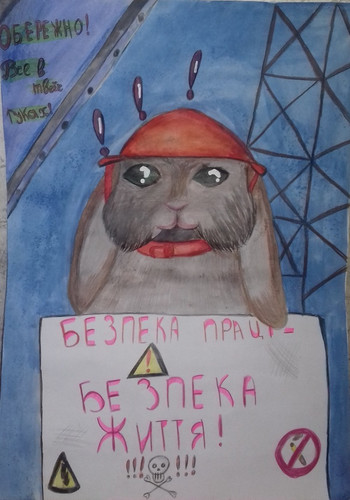 ОБЕРЕЖНО!
Все в
твоїх
руках!
БЕЗПЕКА ПРАЦІ -
БЕЗПЕКА
ЖИТТЯ!
!!! !!!